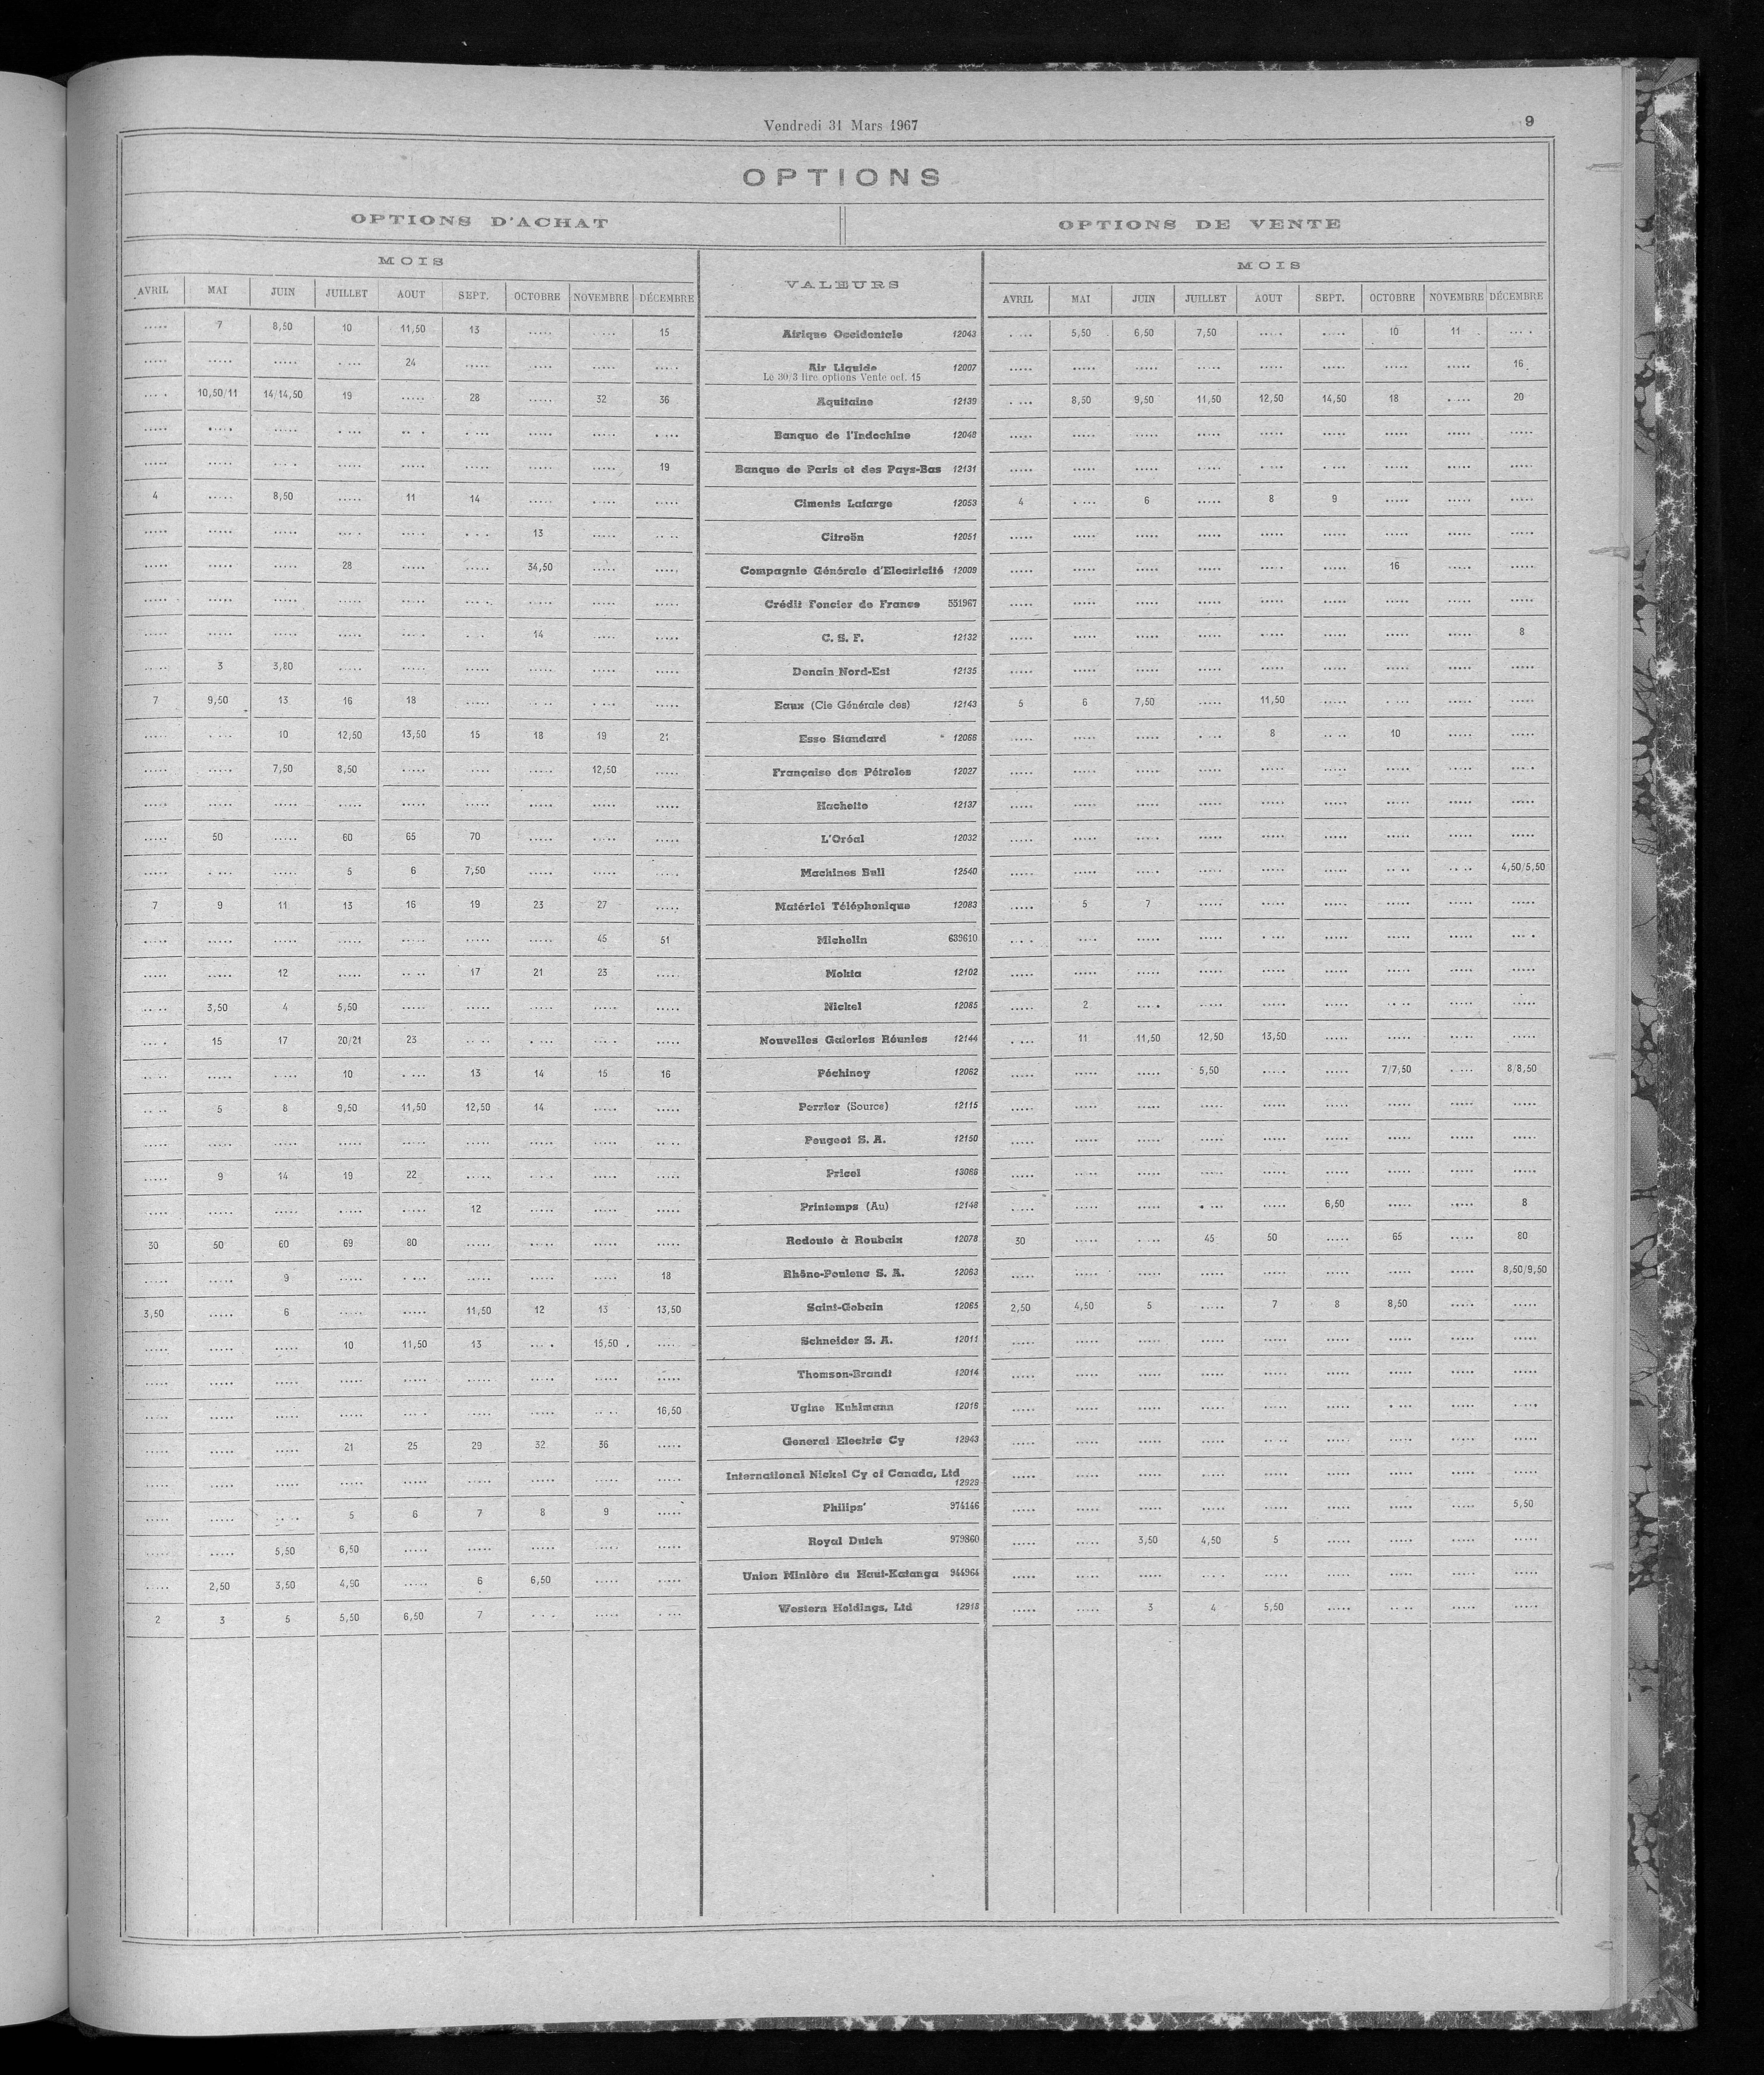 Vendredi 31 Mars 1967
9
OPTIONS
OPTIONS D'ACHAT OPTIONS DE VENTE
MOIS VALEURS MOIS
AVRIL MAI JUIN JUILLET AOUT SEPT. OCTOBRE NOVEMBRE DÉCEMBRE AVRIL MAI JUIN JUILLET AOUT SEPT. OCTOBRE NOVEMBRE DÉCEMBRE
..... 7 8,50 10 11,50 13 ..... ..... 15 Afrique Occidentale 12043 ..... 5,50 6,50 7,50 ..... ..... 10 11 .....
..... ..... ..... ..... 24 ..... ..... ..... ..... Air Liquide 12007 ..... ..... ..... ..... ..... ..... ..... ..... 16
Le 30/3 lire options Vente oct. 15
..... 10,50/11 14/14,50 19 ..... 28 ..... 32 36 Aquitaine 12139 ..... 8,50 9,50 11,50 12,50 14,50 18 ..... 20
..... ..... ..... ..... ..... ..... ..... ..... ..... Banque de l'Indochine 12048 ..... ..... ..... ..... ..... ..... ..... ..... .....
..... ..... ..... ..... ..... ..... ..... ..... 19 Banque de Paris et des Pays-Bas 12131 ..... ..... ..... ..... ..... ..... ..... ..... .....
4 ..... 8,50 ..... 11 14 ..... ..... ..... Ciments Lafarge 12053 4 ..... 6 ..... 8 9 ..... ..... .....
..... ..... ..... ..... ..... ..... 13 ..... ..... Citroën 12051 ..... ..... ..... ..... ..... ..... ..... ..... .....
..... ..... ..... 28 ..... ..... 34,50 ..... ..... Compagnie Générale d'Electricité 12009 ..... ..... ..... ..... ..... ..... 16 ..... .....
..... ..... ..... ..... ..... ..... ..... ..... ..... Crédit Foncier de France 531967 ..... ..... ..... ..... ..... ..... ..... ..... .....
..... ..... ..... ..... ..... ..... 14 ..... ..... C. S. F. 12132 ..... ..... ..... ..... ..... ..... ..... ..... 8
..... 3 3,80 ..... ..... ..... ..... ..... ..... Denain Nord-Est 12135 ..... ..... ..... ..... ..... ..... ..... ..... .....
7 9,50 13 16 18 ..... ..... ..... ..... Eaux (Cie Générale des) 12143 5 6 7,50 ..... 11,50 ..... ..... ..... .....
..... ..... 10 12,50 13,50 15 18 19 21 Esso Standard 12066 ..... ..... ..... ..... 8 ..... 10 ..... .....
..... ..... 7,50 8,50 ..... ..... ..... 12,50 ..... Française des Pétroles 12027 ..... ..... ..... ..... ..... ..... ..... ..... .....
..... ..... ..... ..... ..... ..... ..... ..... ..... Hachette 12137 ..... ..... ..... ..... ..... ..... ..... ..... .....
..... 50 ..... 60 65 70 ..... ..... ..... L'Oréal 12032 ..... ..... ..... ..... ..... ..... ..... ..... .....
..... ..... ..... 5 6 7,50 ..... ..... ..... Machines Bull 12540 ..... ..... ..... ..... ..... ..... ..... ..... 4,50/5,50
7 9 11 13 16 19 23 27 ..... Matériel Téléphonique 12083 ..... 5 7 ..... ..... ..... ..... ..... .....
..... ..... ..... ..... ..... ..... ..... 45 51 Michelin 639610 ..... ..... ..... ..... ..... ..... ..... ..... .....
..... ..... 12 ..... ..... 17 21 23 ..... Mokta 12102 ..... ..... ..... ..... ..... ..... ..... ..... .....
..... 3,50 4 5,50 ..... ..... ..... ..... ..... Nickel 12085 ..... 2 ..... ..... ..... ..... ..... ..... .....
..... 15 17 20/21 23 ..... ..... ..... ..... Nouvelles Galeries Réunies 12144 ..... 11 11,50 12,50 13,50 ..... ..... ..... .....
..... ..... ..... 10 ..... 13 14 15 16 Péchiney 12062 ..... ..... ..... 5,50 ..... ..... 7/7,50 ..... 8/8,50
..... 5 8 9,50 11,50 12,50 14 ..... ..... Perrier (Source) 12115 ..... ..... ..... ..... ..... ..... ..... ..... .....
..... ..... ..... ..... ..... ..... ..... ..... ..... Peugeot S. A. 12150 ..... ..... ..... ..... ..... ..... ..... ..... .....
..... 9 14 19 22 ..... ..... ..... ..... Pricel 13066 ..... ..... ..... ..... ..... ..... ..... ..... .....
..... ..... ..... ..... ..... 12 ..... ..... ..... Printemps (Au) 12148 ..... ..... ..... ..... ..... 6,50 ..... ..... 8
30 50 60 69 80 ..... ..... ..... ..... Redoute à Roubaix 12078 30 ..... ..... 45 50 ..... 65 ..... 80
..... ..... 9 ..... ..... ..... ..... ..... 18 Rhône-Poulenc S. A. 12063 ..... ..... ..... ..... ..... ..... ..... ..... 8,50/9,50
3,50 ..... 6 ..... ..... 11,50 12 13 13,50 Saint-Gobain 12065 2,50 4,50 5 ..... 7 8 8,50 ..... .....
..... ..... ..... 10 11,50 13 ..... 15,50 ..... Schneider S. A. 12011 ..... ..... ..... ..... ..... ..... ..... ..... .....
..... ..... ..... ..... ..... ..... ..... ..... ..... Thomson-Brandt 12014 ..... ..... ..... ..... ..... ..... ..... ..... .....
..... ..... ..... ..... ..... ..... ..... ..... 16,50 Ugine Kuhlmann 12016 ..... ..... ..... ..... ..... ..... ..... ..... .....
..... ..... ..... 21 25 29 32 36 ..... General Electric Cy 12943 ..... ..... ..... ..... ..... ..... ..... ..... .....
..... ..... ..... ..... ..... ..... ..... ..... ..... International Nickel Cy of Canada, Ltd ..... ..... ..... ..... ..... ..... ..... ..... .....
12929
..... ..... ..... 5 6 7 8 9 ..... Philips' 974146 ..... ..... ..... ..... ..... ..... ..... ..... 5,50
..... ..... 5,50 6,50 ..... ..... ..... ..... ..... Royal Dutch 979860 ..... ..... 3,50 4,50 5 ..... ..... ..... .....
..... 2,50 3,50 4,50 ..... 6 6,50 ..... ..... Union Minière du Haut-Katanga 944964 ..... ..... ..... ..... ..... ..... ..... ..... .....
2 3 5 5,50 6,50 7 ..... ..... ..... Western Holdings, Ltd 12918 ..... ..... 3 4 5,50 ..... ..... ..... .....